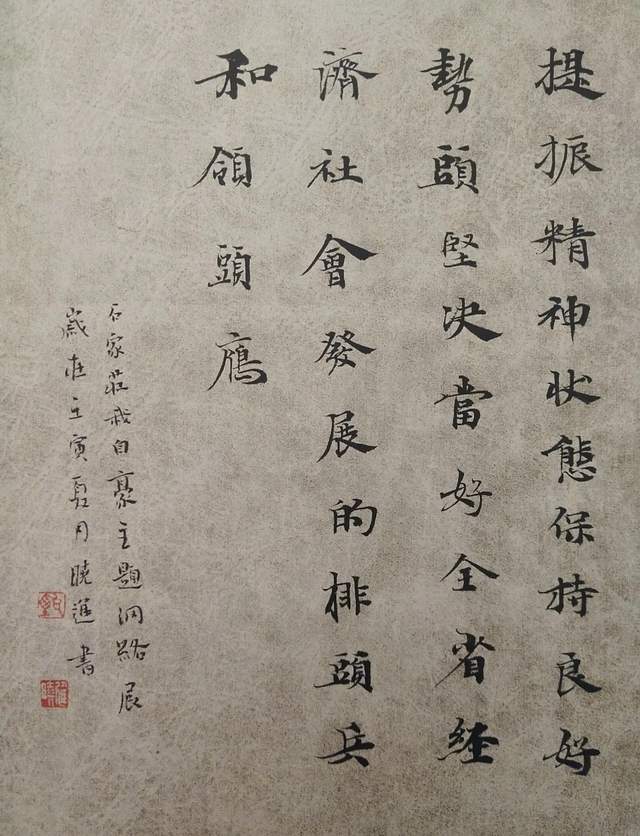 提振精神状態保持良好
勢頭堅决當好全省経
濟社會發展的排頭兵
和領頭鴈
石家莊我自豪主題網絡展
歲在壬寅夏月曉進書